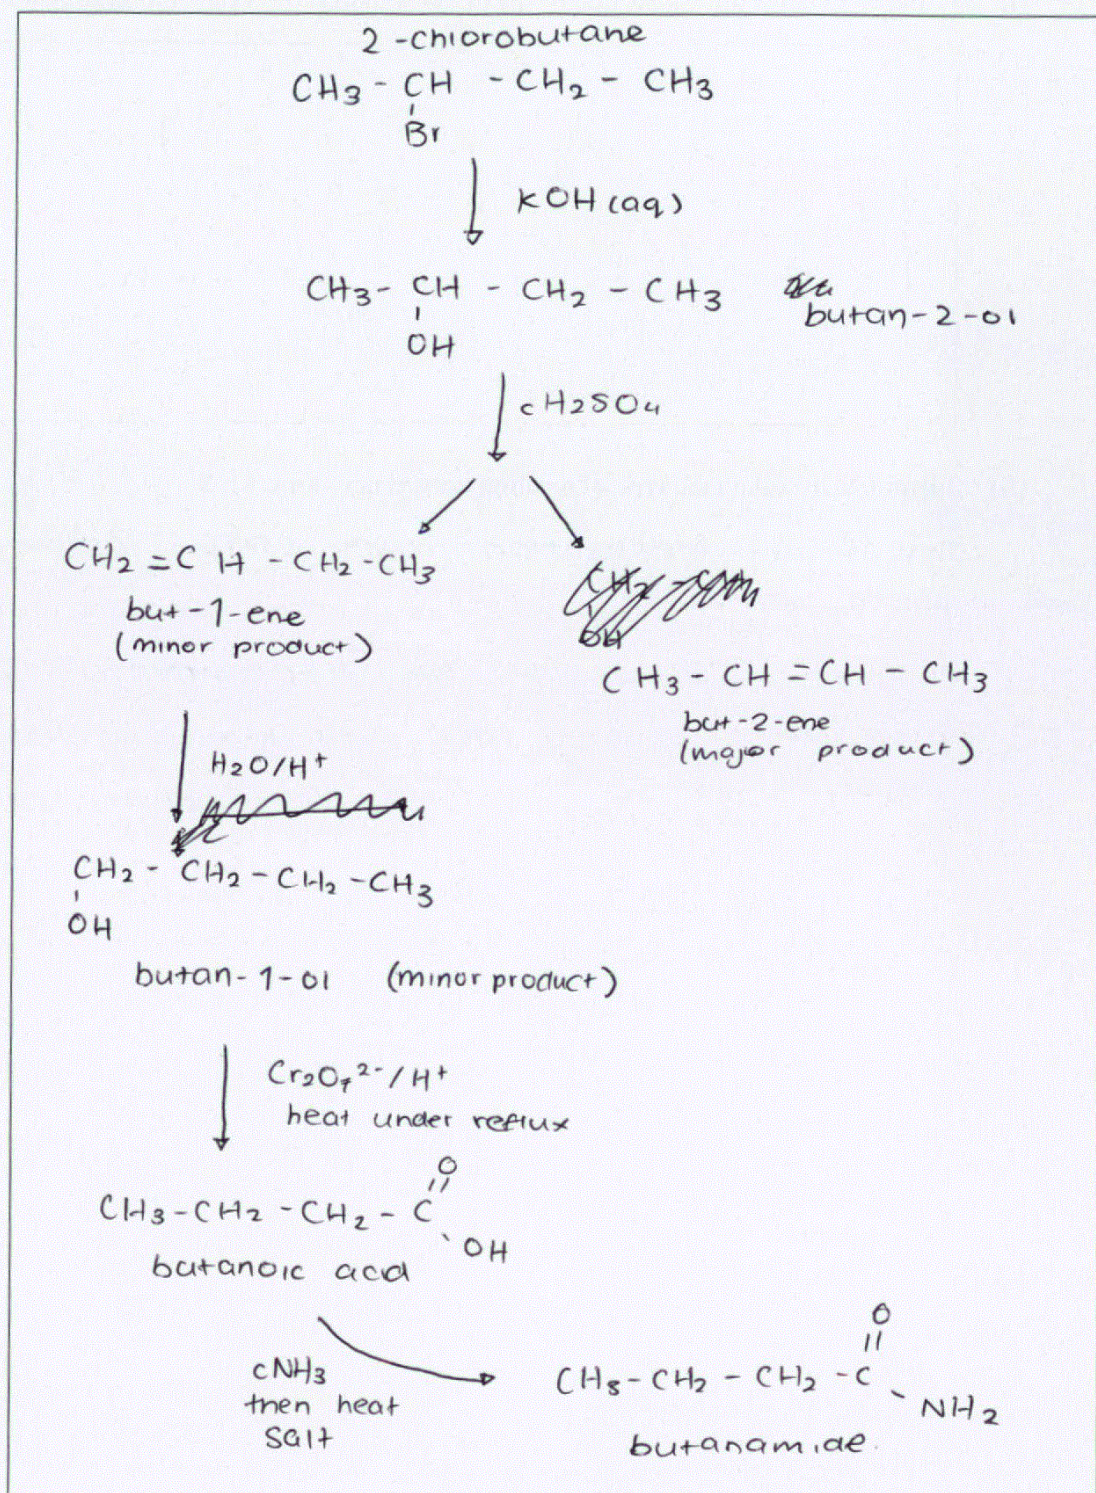 2-chlorobutane
CH3 - CH - CH2 - CH3
Br
KOH (aq)
CH3 - CH - CH2 - CH3
OH
butan-2-ol
cH2SO4
CH2 = CH - CH2 - CH3
but-1-ene
(minor product)
CH3 - CH = CH - CH3
but-2-ene
(major product)
H2O/H+
CH2 - CH2 - CH2 - CH3
OH
butan-1-ol (minor product)
Cr2O7 2- / H+
heat under reflux
O
CH3 - CH2 - CH2 - C
OH
butanoic acid
cNH3
then heat
salt
O
CH3 - CH2 - CH2 - C
NH2
butanamide.